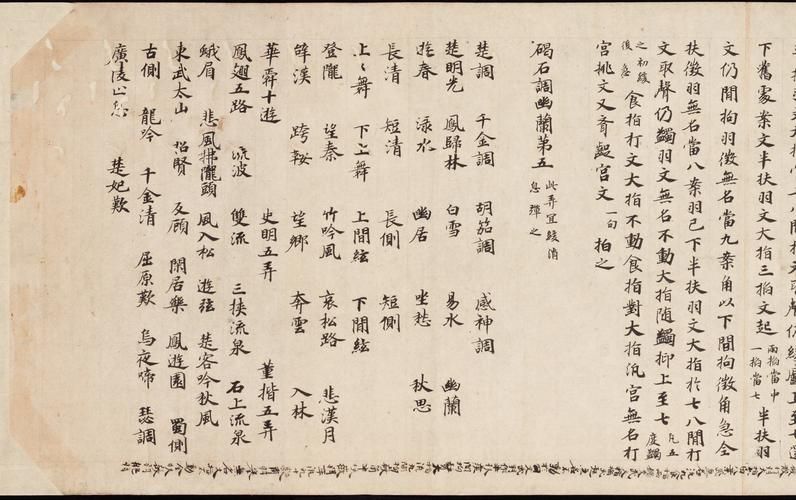 八間打文取聲仍緩盧上至七還
下舊處案文半扶羽文大指三拍文起兩拍當中一拍當七半扶羽
文仍間拘羽徵無名當九案角以下間拘徵角急全
扶徵羽無名當八案羽已下半扶羽文大指於七八間打
文取聲仍蠲羽文無名不動大指随蠲抑上至七凡五度蠲
之初緩後急食指打文大指不動食指對大指汎宮無名打
宮挑文又齊齪宮文一句 拍之
碣石調幽蘭第五 此弄宜緩消息彈之
楚調 千金調 胡笳調 感神調
楚明光 鳳歸林 白雪 易水 幽蘭
遊春 淥水 幽居 坐愁 秋思
長清 短清 長側 短側
上〻舞 下上舞 上間絃 下間絃
登隴 望秦 竹吟風 哀松路 悲漢月
辞漢 跨鞍 望鄉 奔雲 入林
華舜十遊 史明五弄 董揩五弄
鳳翅五路 流波 雙流 三挾流泉 石上流泉
峨眉 悲風拂隴頭 風入松 遊弦 楚客吟秋風
東武太山 招賢 反顧 閑居樂 鳳遊園 蜀側
古側 龍吟 千金清 屈原歎 烏夜啼 瑟調
廣陵止息 楚妃歎